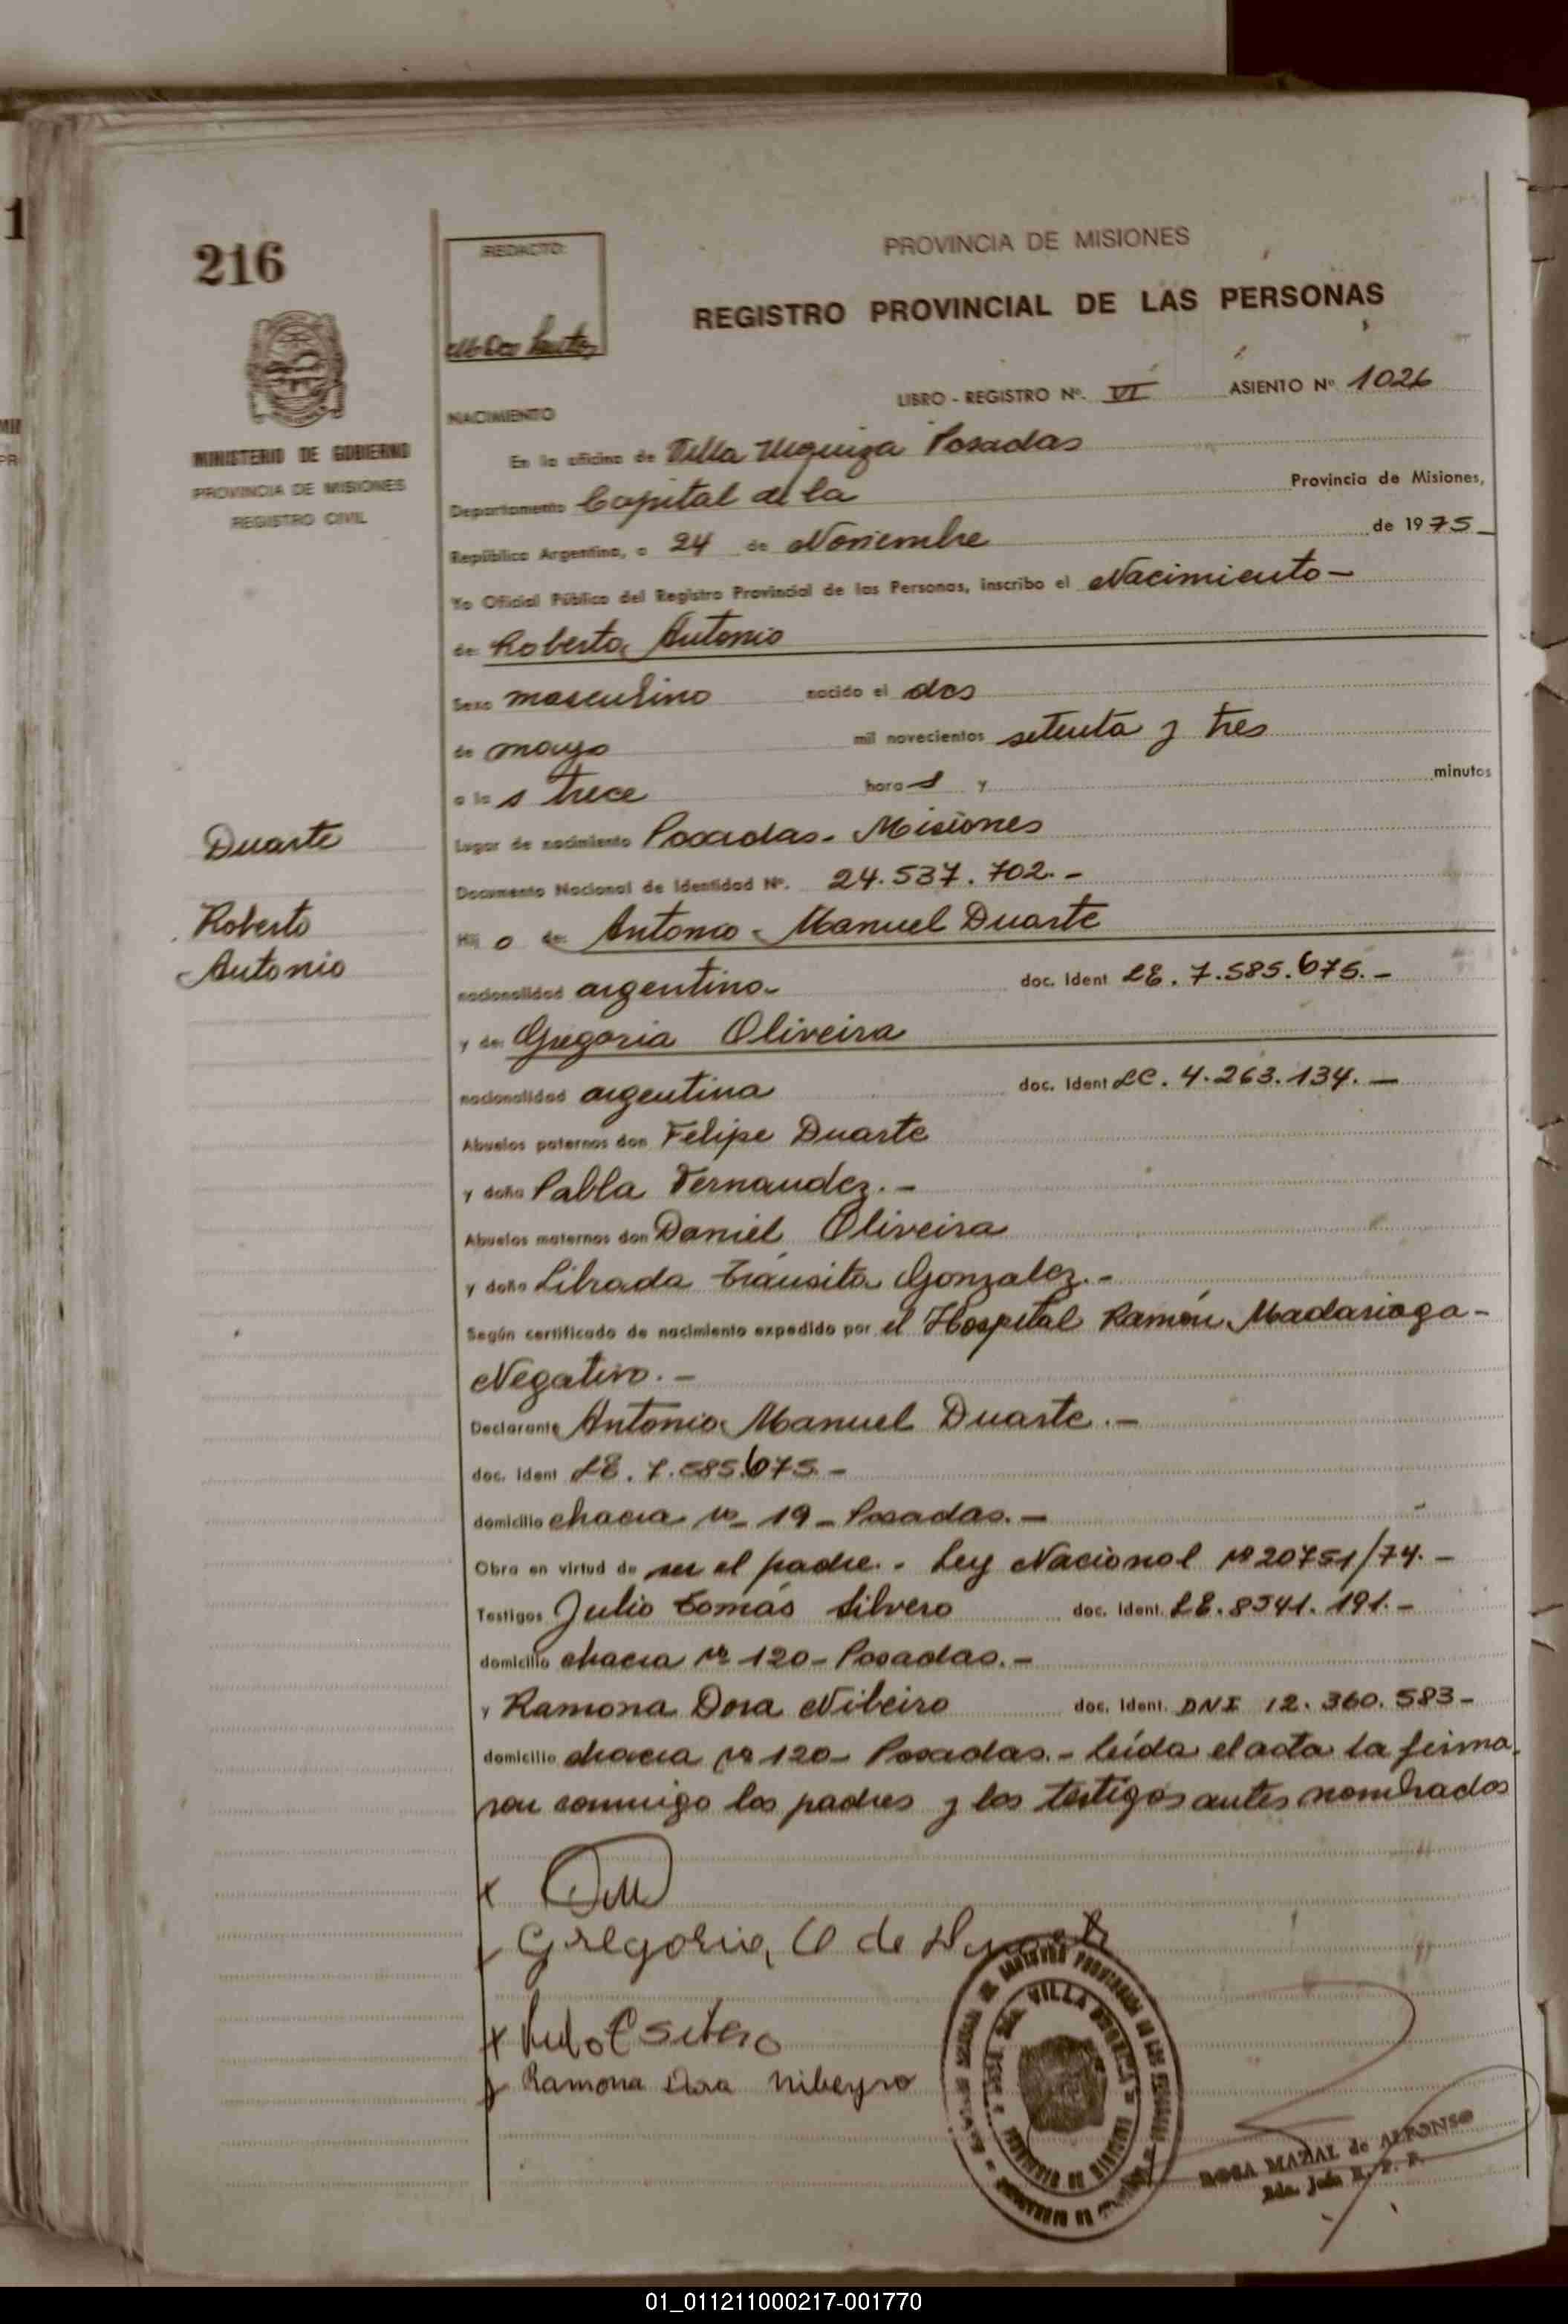 216
REDACTO:
PROVINCIA DE MISIONES
REGISTRO PROVINCIAL DE LAS PERSONAS
LIBRO - REGISTRO Nº. VI ASIENTO Nº 1026
NACIMIENTO
MINISTERIO DE GOBIERNO
PROVINCIA DE MISIONES
REGISTRO CIVIL
En la oficina de Villa Urquiza Posadas
Departamento Capital de la Provincia de Misiones,
República Argentina, a 24 de Noviembre de 1975
Yo Oficial Público del Registro Provincial de las Personas, inscribo el Nacimiento -
de: Roberto Antonio
Sexo masculino nacido el dos
de mayo mil novecientos setenta y tres
a la s trece hora s y minutos
Lugar de nacimiento Posadas - Misiones
Documento Nacional de Identidad Nº. 24.537.702. -
Duarte
Roberto
Antonio
Hij o de: Antonio Manuel Duarte
nacionalidad argentino - doc. Ident LE. 7.585.675. -
y de: Gregoria Oliveira
nacionalidad argentina doc. Ident LC. 4.263.134. -
Abuelos paternos don Felipe Duarte
y doña Pabla Fernandez. -
Abuelos maternos don Daniel Oliveira
y doña Librada Tránsita Gonzalez. -
Según certificado de nacimiento expedido por el Hospital Ramón Madariaga -
Negativo. -
Declarante Antonio Manuel Duarte. -
doc. Ident LE. 7.585.675. -
domicilio chacra nº 19 - Posadas. -
Obra en virtud de ser el padre. - Ley Nacional nº 20751/74. -
Testigos Julio Tomás Silvero doc. Ident. LE. 8541.191. -
domicilio chacra nº 120 - Posadas. -
y Ramona Dora Nibeiro doc. Ident. DNI 12.360.583 -
domicilio chacra nº 120 - Posadas. - Leída el acta la firma
ron conmigo los padres y los testigos antes nombrados
Gregoria O de Duarte
Ramona Dora Nibeyro
VILLA URQUIZA
ROSA MAZAL de ALFONSO
01_011211000217-001770